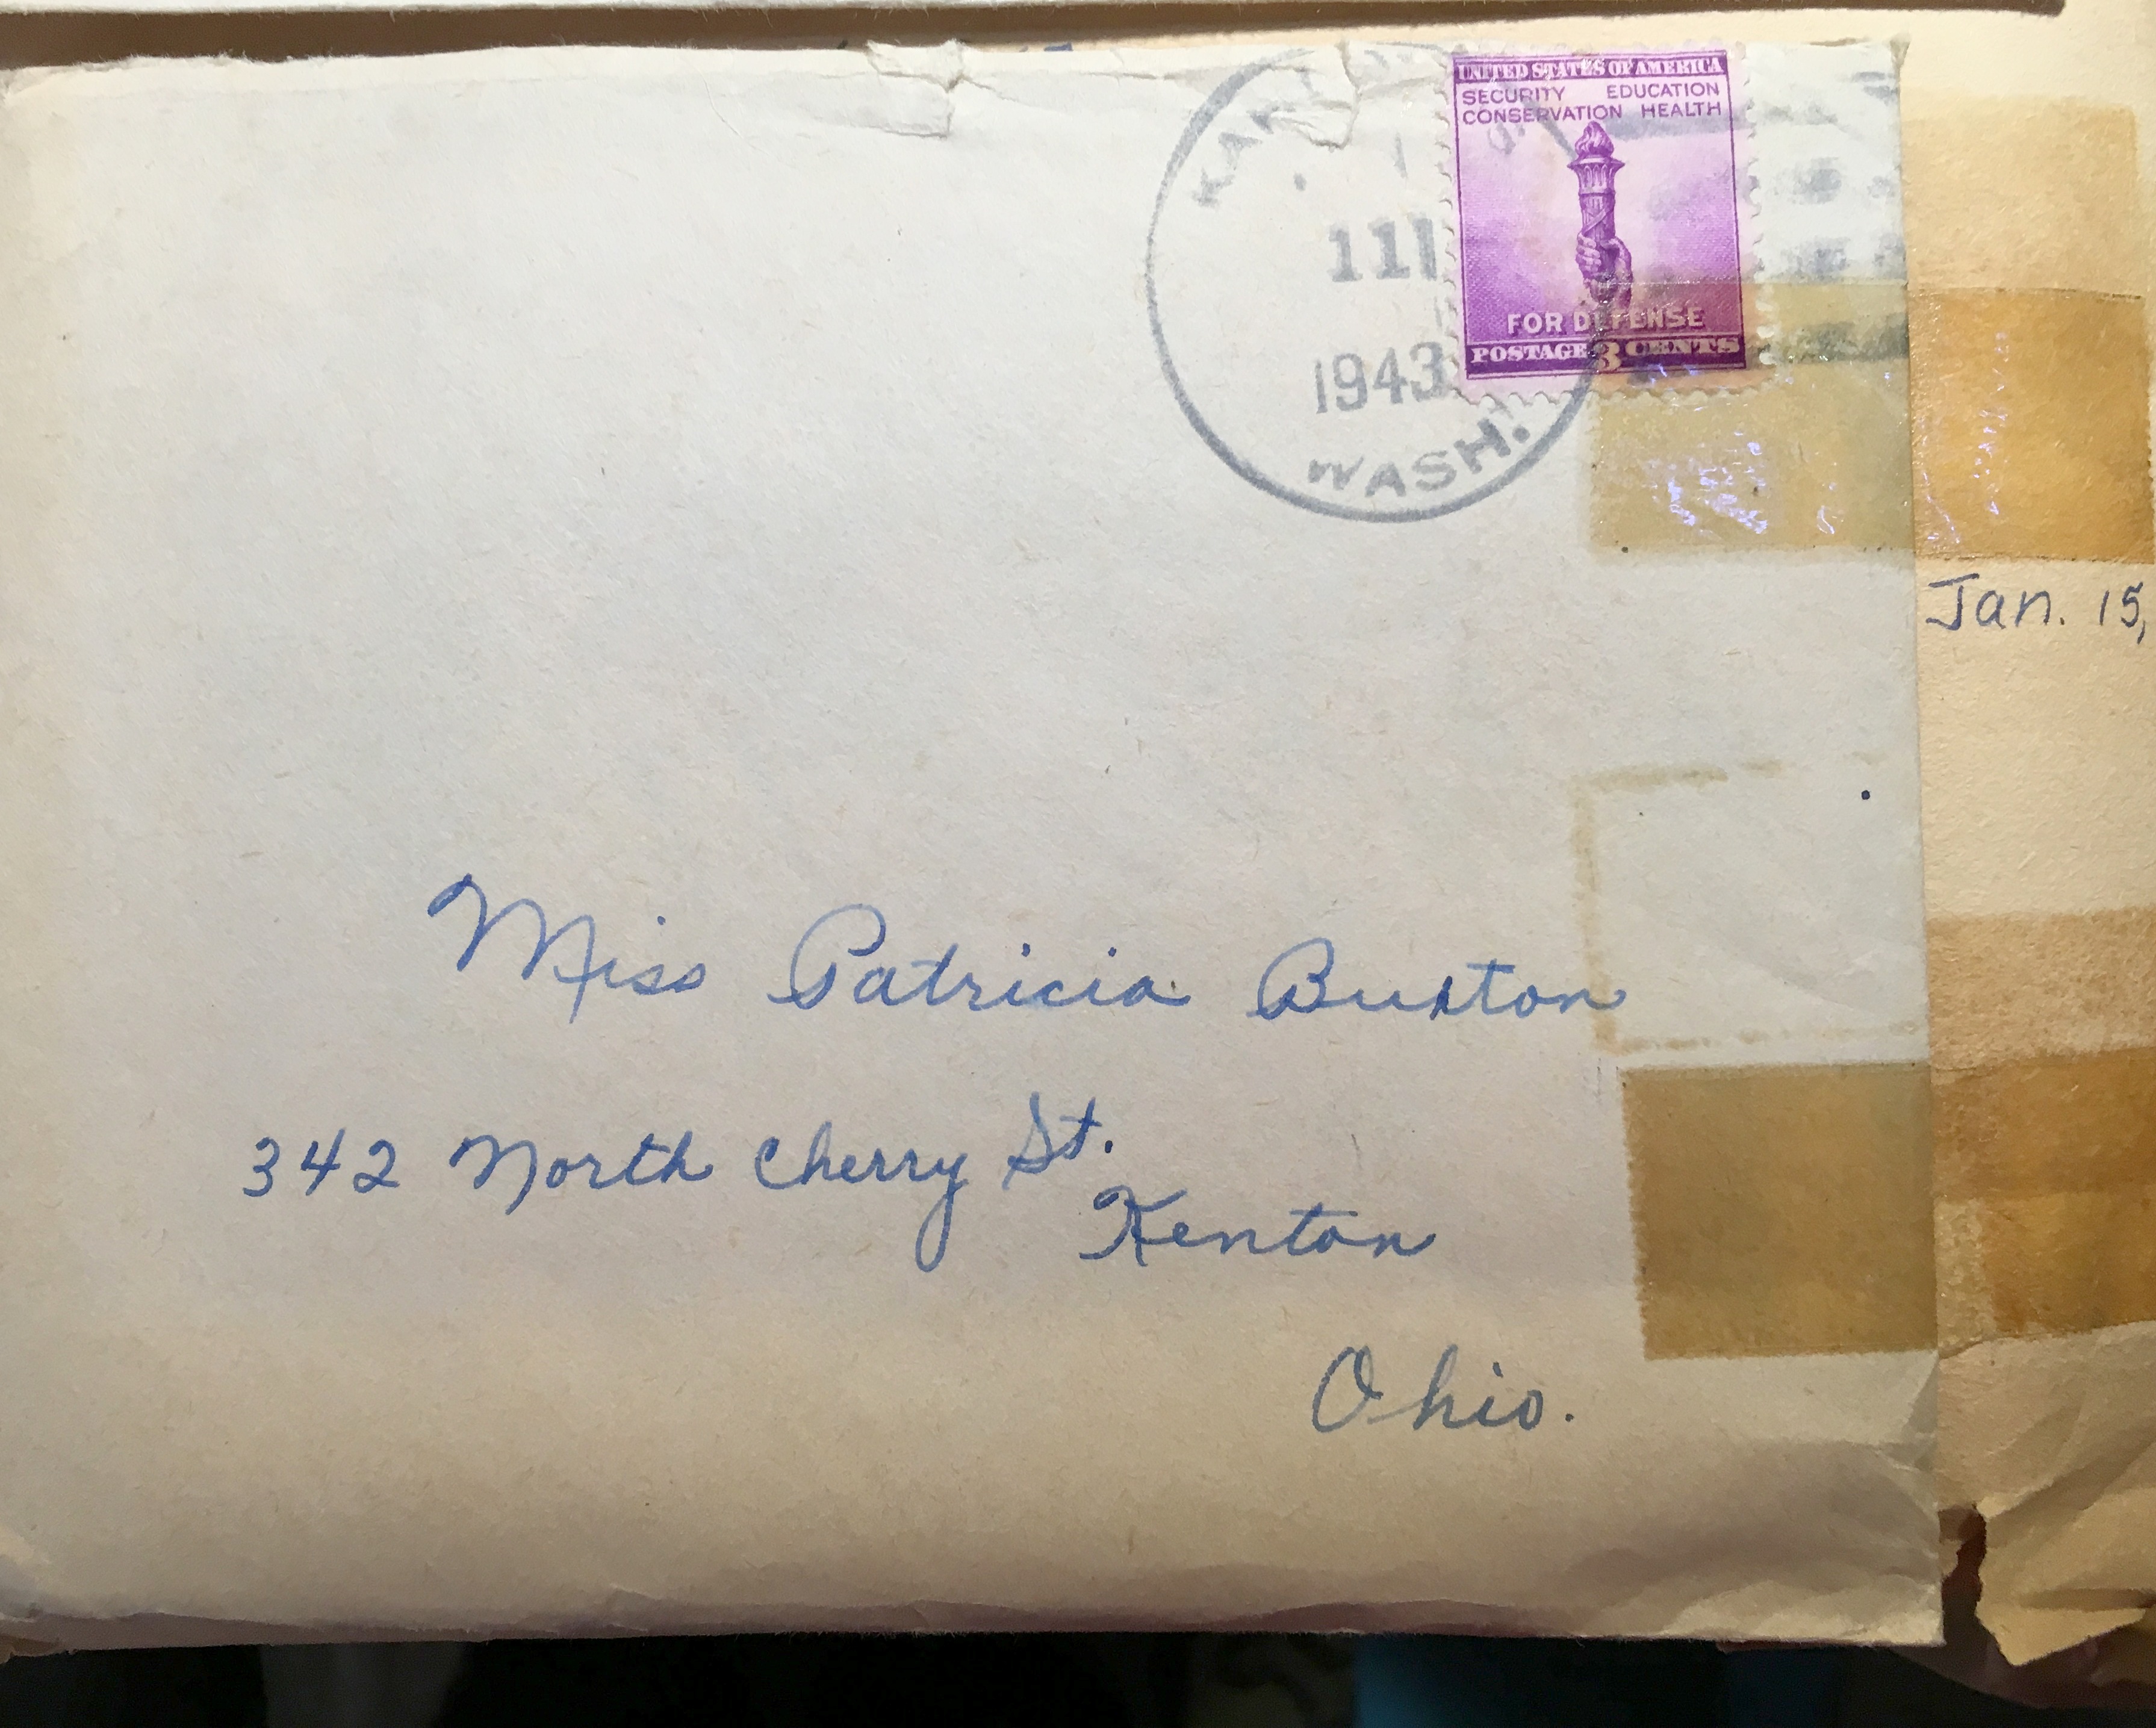 UNITED STATES OF AMERICA
SECURITY EDUCATION
CONSERVATION HEALTH
FOR DEFENSE
POSTAGE 3 CENTS
1943
WASH.
Jan. 15,
Miss Patricia Buxton
342 North Cherry St.
Kenton
Ohio.